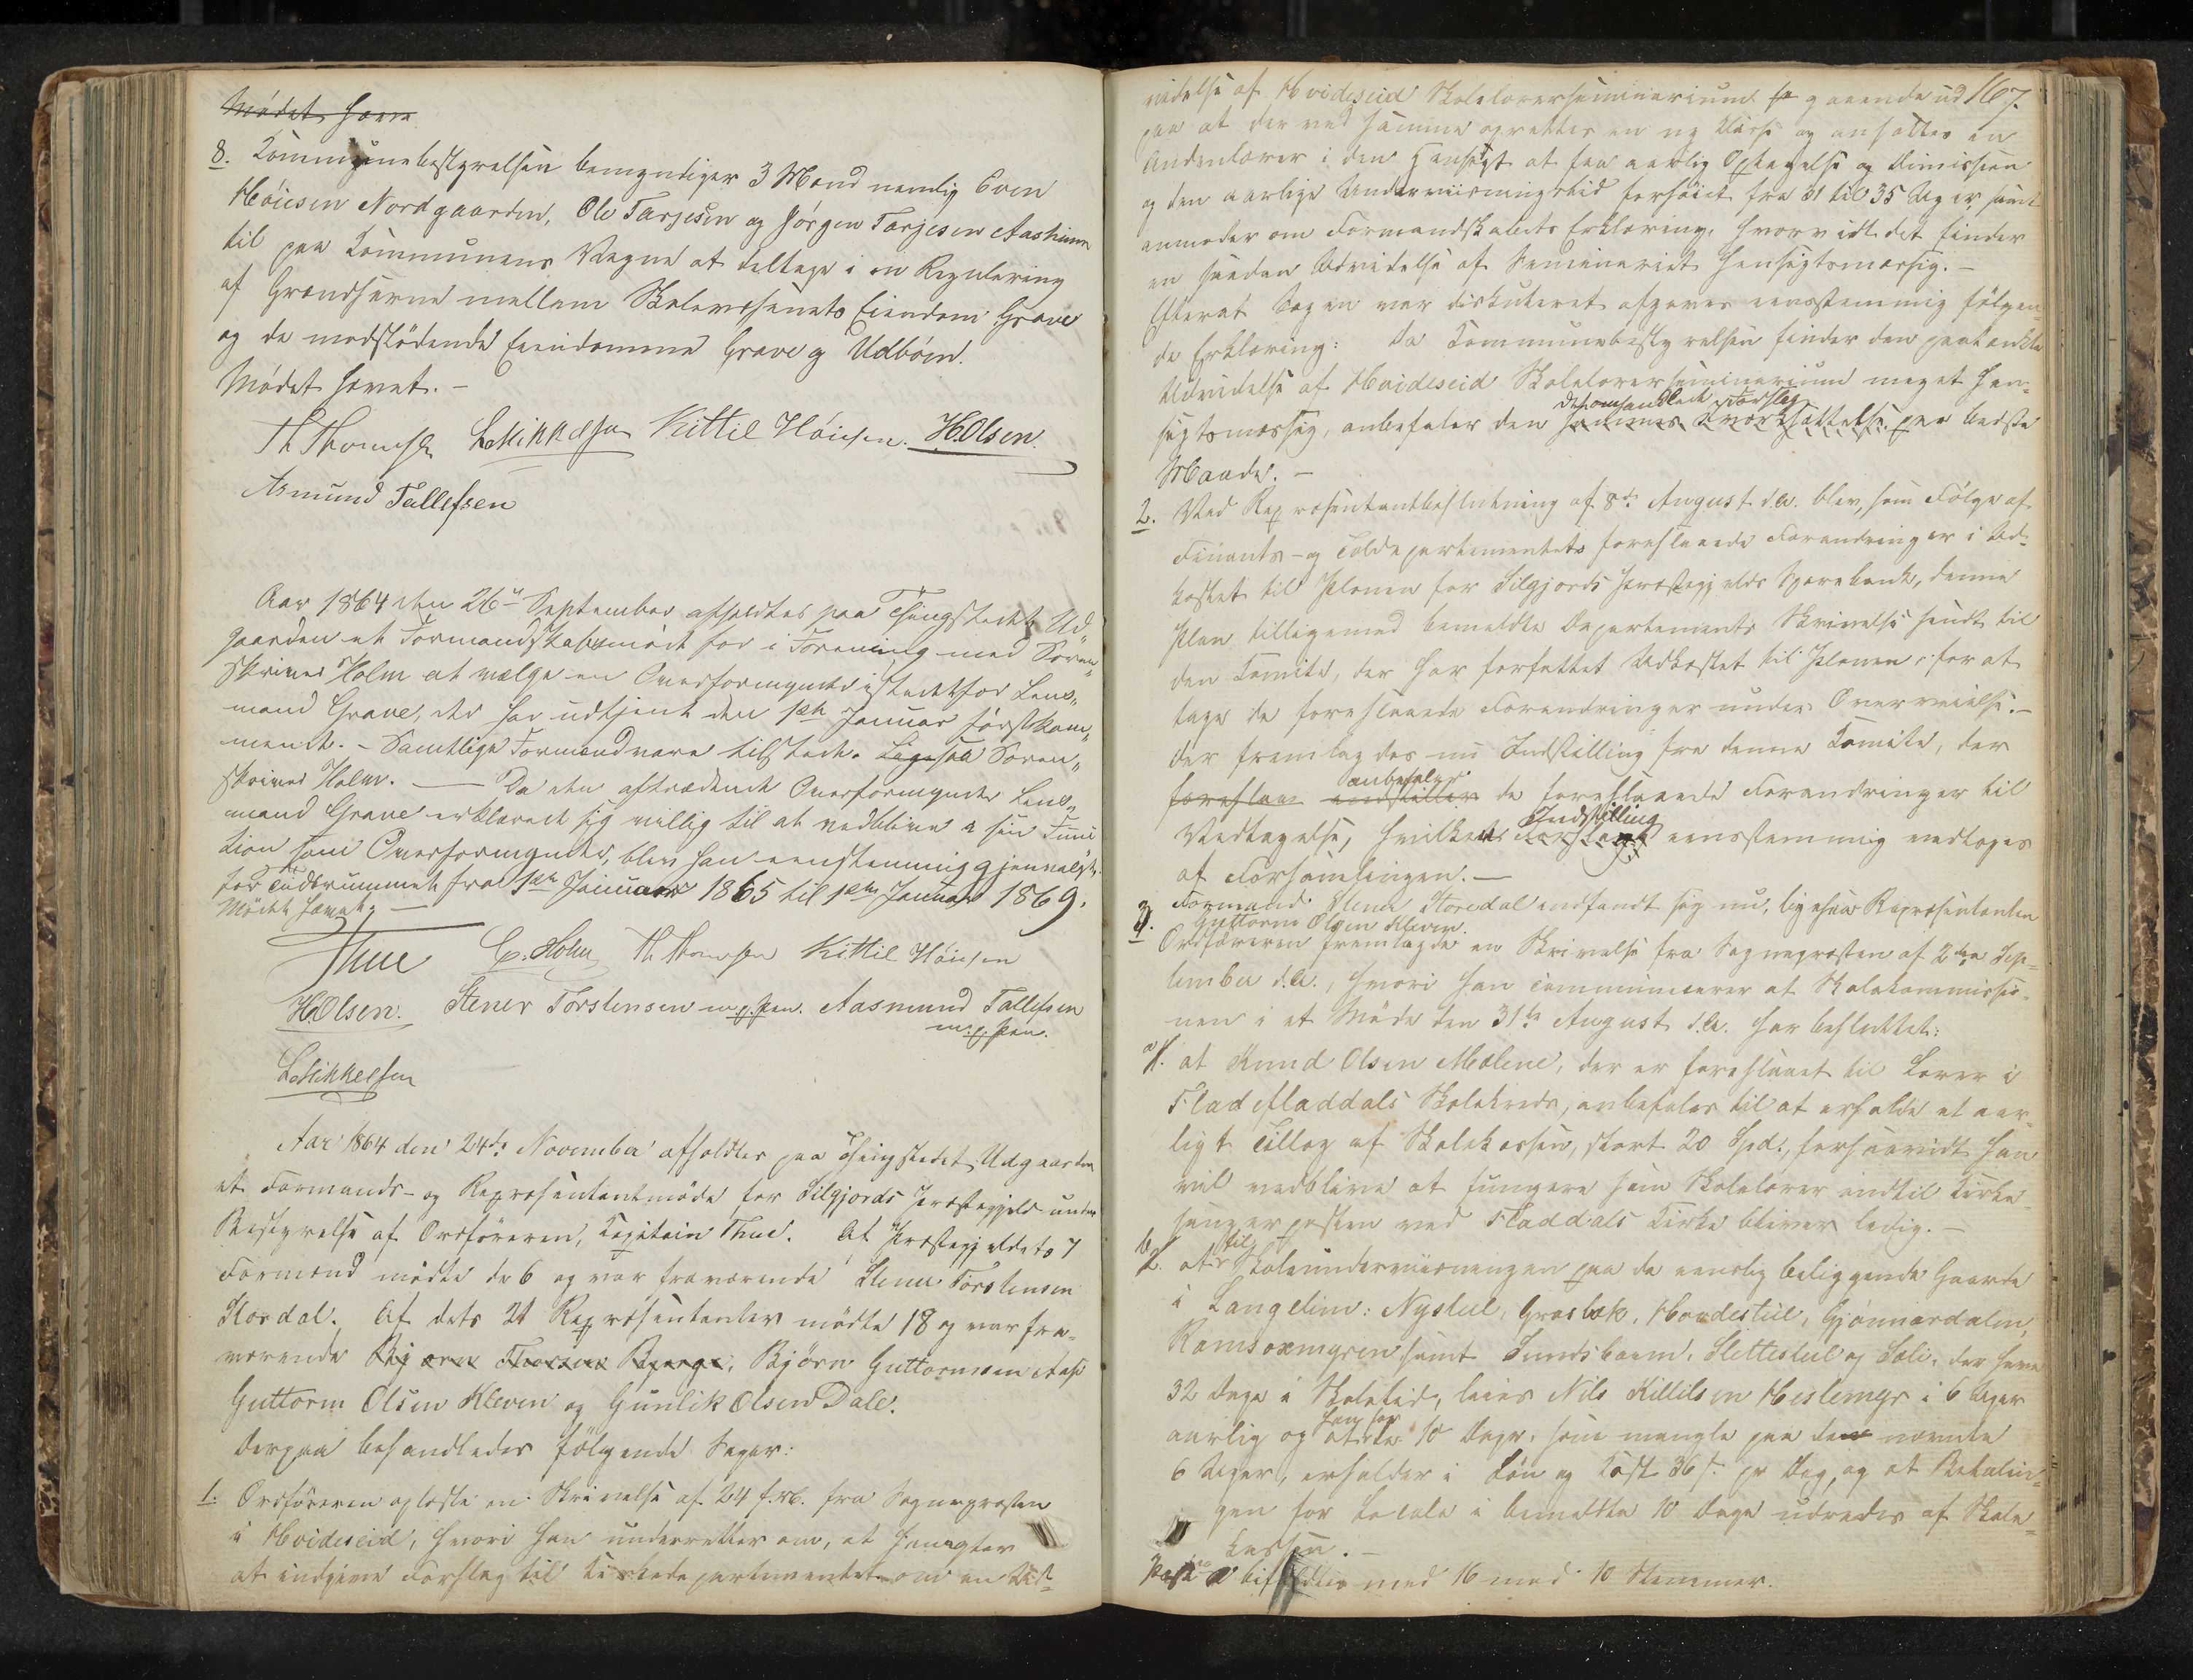 Mødet hæve
8. Kommunebestyrelsen bemyndiger 3 Mænd nemlig Even
Høiesen Nordgaarden, Ole Tarjesen og Jørgen Tarjesen Aasheim
til paa Kommunens Vegne at deltage i en Regulering
af Grændserne mellem Skolevæsenets Eiendom Grave
og de modstødende Eiendomme Grave g Udbøen.
Mødet hævet. –
Th Thomesen LMikkelsen Kittil Høiesen. HOlsen.
Asmund Tallefsen
Aar 1864 den 26de September afholdtes paa Thingstedet Ud„
gaarden et Formandskabsmøde for i Forening med Soren„
skriver Holm at vælge en Overformynder istedetfor Lens„
mand Grave, der har udtjent den 1ste Januar førstkom„
mende. – Samtlige Formænd vare tilstede. Ligesaa Soren„
skriver Holm. — Da den aftrædende Overformynder Lens„
mand Grave erklærede sig villig til at vedblive i sin Func
tion som Overformynder, blev han eenstemmig gjenvalgt
for Tidsrummet fra 1ste Januar 1865 til 1ste Januar 1869.
Mødet hævet. —
Thue C. Holm Th Thomesen Kittil Høiesen
HOlsen. Stener Torstensen m. p. Pen. Aasmund Tallefsen
m. p. Pen.
LMikkelsen
Aar 1864 den 24de November afholdtes paa Thingstedet Udgaarden
et Formands- og Repræsentantmøde for Silgjords Præstegjeld under
Bestyrelse af Ordføreren, Kapitain Thue. Af Præstegjeldets 7
Formænd mødte de 6 og var fraværende Stener Torstensen
Stordal. Af dets 21 Repræsentanter mødte 18 og var fra-
værende Bjørn Thorsen Bjerge, Bjørn Guttormsen Aase
Guttorm Olsen Kleven og Gunlik Olsen Dale.
Derpaa behandledes følgende Sager:
1. Ordføreren oplæste en Skrivelse af 24 f. M. fra Sognepræsten
i Hvideseid, hvori han underretter om, at han agter
at indgive Forslag til Kirkedepartementet om en Ud-
videlse af Hvideseid Skolelærerseminarium gaaende ud 167.
paa at der ved samme oprettes en ny Klasse og ansættes en
Andenlærer i den Hensigt at faa aarlig Optagelse og Dimission
og den aarlige Underviisningstid forhøiet fra 31 til 35 Uger, samt
anmoder om Formandskabets Erklæring, hvorvidt det finder
en saadan Udvidelse af Seminariet hensigtsmæssig. –
Efterat Sagen var diskuteret afgaves eensstemmig følgen-
de Erklæring: Da Kommunebestyrelsen finder den paatænkte
Udvidelse af Hvideseid Skolelærerseminarium meget hen-
det omhandlede Forslag
sigtsmæssig, anbefaler den sammes Iværksættelse paa bedste
Maade. –
2. Ved Repræsentantbeslutning af 8de August d. A. blev, som Følge af
Finants- og Tolddepartementets foreslaaede Forandringer i Ud-
kastet til Planen for Silgjords Præstegjelds Sparebank, denne
Plan tilligemed bemeldte Departements Skrivelse sendt til
den Komite, der har forfattet Udkastet til Planen, for at
tage de foreslaaede Forandringer under Overveielse. –
Der fremlagdes nu Indstilling fra denne Komite, der
anbefaler
foreslaa indstiller de foreslaaede Forandringer til
Indstilling
Vedtagelse, hvilken Forslaget eensstemmig vedtoges
af Forsamlingen. —
Formand Stener Storedal indfandt sig nu, ligesaa Repræsentanten
Guttorm Olsen Kleven.
3. Ordføreren fremlagde en Skrivelse fra Sognepræsten af 2den Sep-
tember d. A., hvori han communicerer at Skolekommissio-
nen i et Møde den 31te August d. A. har besluttet:
a. at Knud Olsen Molene, der er foreslaaet til Lærer i
Fladefladdals Skolekreds, anbefales til at erholde et aar-
ligt Tillæg af Skolekassen, stort 20 Spd., forsaavidt han
vil vedblive at fungere som Skolelærer indtil Kirke-
sangerposten ved Fladdals Kirke bliver ledig. –
b. at til Skoleunderviisningen paa de eenslig beliggende Gaarde
i Langelim: Nystul, Grasbæk, Hovdestul, Gjønnardalen,
Ramsoxmyren samt Sundsbarm, Slettestul og Soli, der have
32 Dage i Skoletid, leies Nils Kittilsen Heslemyr i 6 Uger
han for
aarlig og at de 10 Dage, som mangle paa de nævnte
6 Uger, erholder i Løn og Kost 36 s. pr Dag, og at Betalin-
gen for Locale i bemeldte 10 Dage udredes af Skole-
kassen. –
Post a bifaldtes med 16 mod 10 Stemmer.